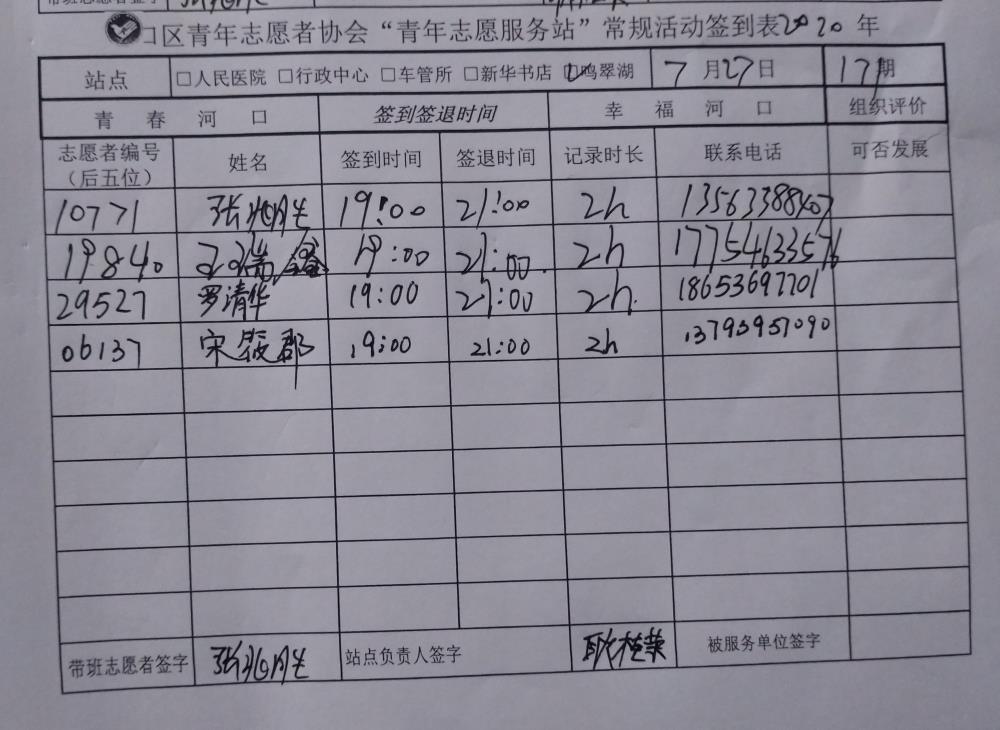 口区青年志愿者协会“青年志愿服务站”常规活动签到表2020年
站点 □人民医院 □行政中心 □车管所 □新华书店 ☑鸣翠湖 7月27日 17期
青春河口 签到签退时间 幸福河口 组织评价
志愿者编号（后五位） 姓名 签到时间 签退时间 记录时长 联系电话 可否发展
10771 张兆胜 19:00 21:00 2h
19840 19:00 21:00 2h 17754633576
29527 罗清华 19:00 21:00 2h 18653697701
06137 宋筱郡 19:00 21:00 2h 13793957090
带班志愿者签字 张兆胜 站点负责人签字 耿桂荣 被服务单位签字